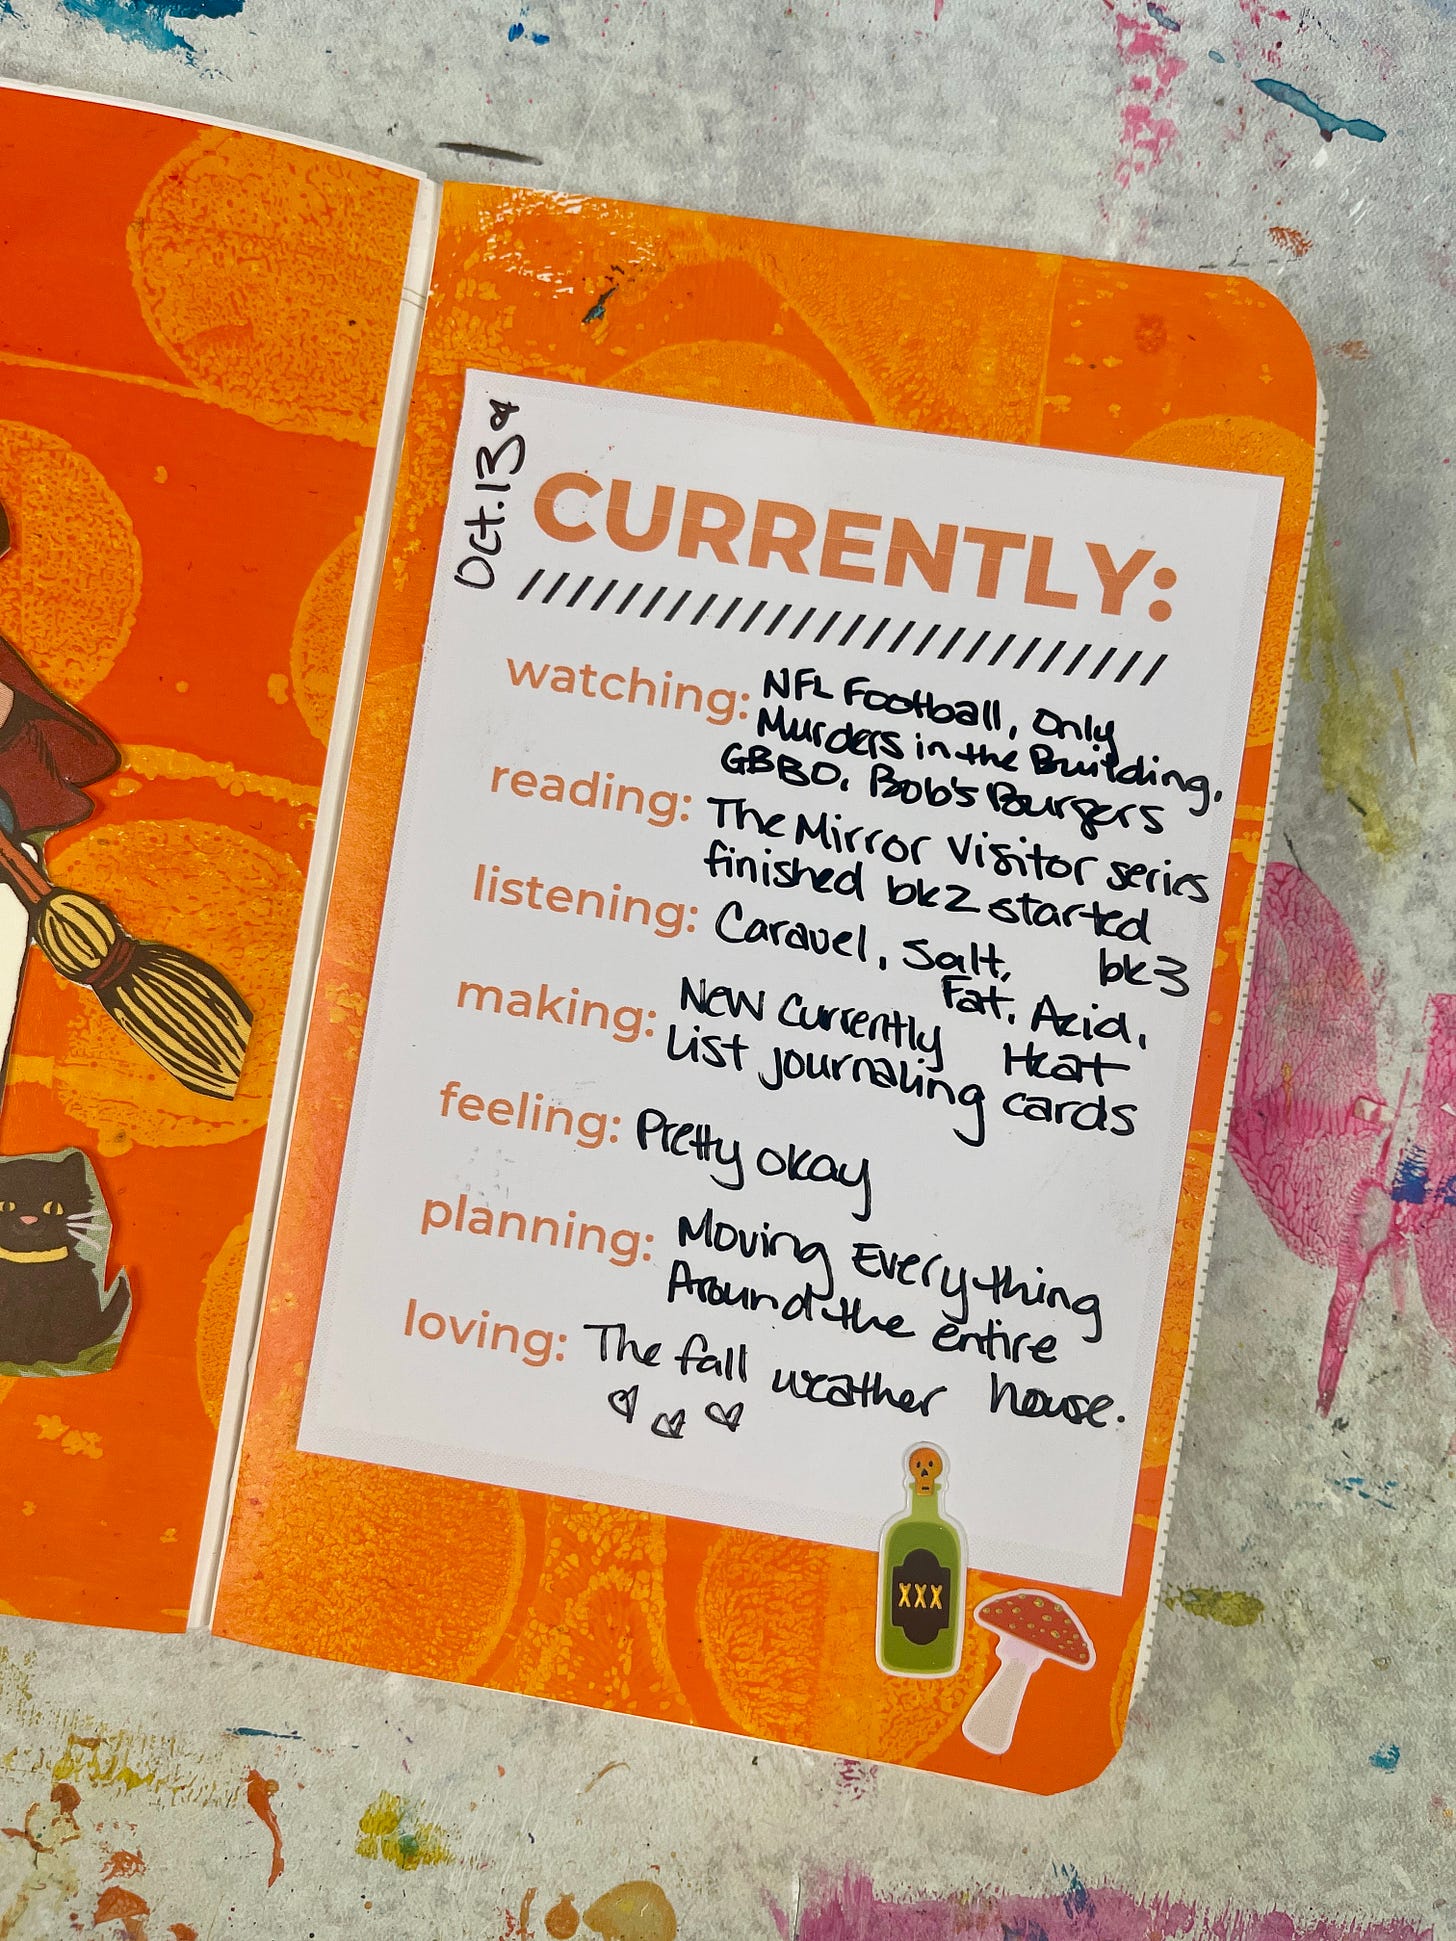 Oct. 13
CURRENTLY:
watching: NFL Football, Only
Murders in the Building,
GBBO, Bob's Burgers
reading: The Mirror Visitor series
finished bk2 started
bk3
listening: Caravel, Salt,
Fat, Acid,
Heat
making: New Currently
List journaling cards
feeling: Pretty okay
planning: Moving Everything
Around the entire
house.
loving: The fall weather
XXX